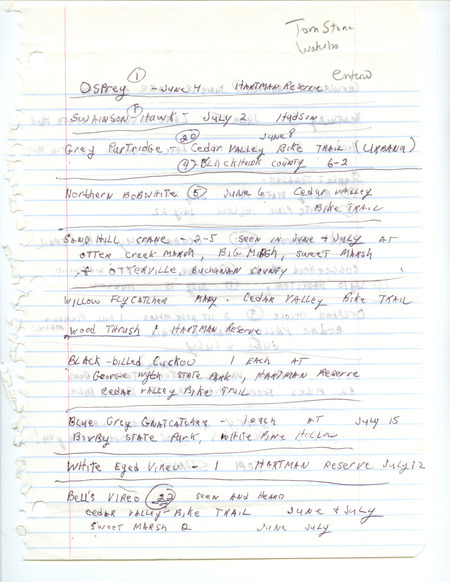 Tom Stone
Waterloo
entered
①
Osprey - June 4 Hartman Reserve
Swainson - Hawk - July 2 Hudson
(20) June 8
Grey Partridge - Cedar Valley Bike Trail (Urbana)
(4) - Black Hawk County 6-2
Northern BobWhite (5) June 6 Cedar Valley
Bike Trail
Sand Hill crane - 2-5 seen in June & July at
otter creek marsh, Big Marsh, sweet Marsh
& Otterville, Buchanan County
Willow Flycatcher many. Cedar Valley Bike Trail
Wood Thrush 1 Hartman Reserve
Black-billed Cuckow 1 each at
George State Park, Hartman Reserve
cedar valley Bike Trail
Blue Grey Gnatcatcher - 1 each at July 15
Bixby State Park, White Pine Hollow
White Eyed Vireo - 1 Hartman Reserve July 12
Bell's Vireo (22) seen and Heard
cedar valley - Bike Trail June & July
Sweet Marsh 2 June July